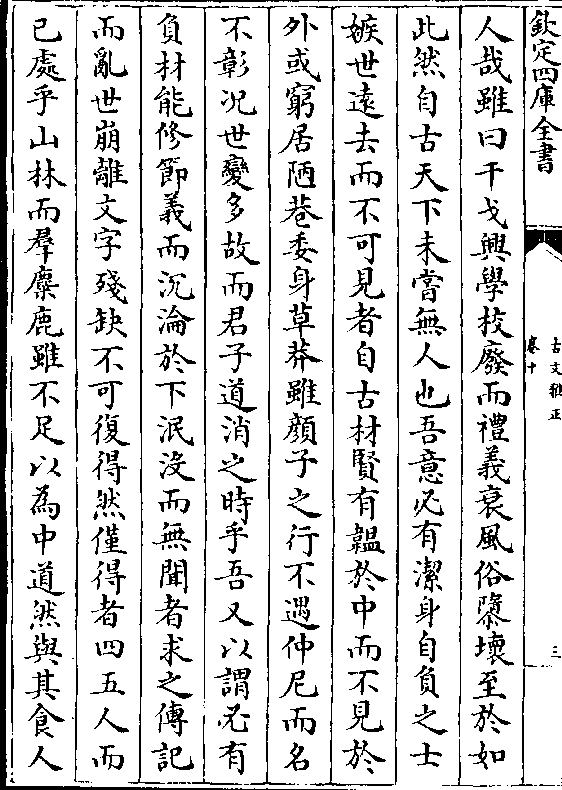 欽定四庫全書
古文雅正
卷十
三
人哉雖曰干戈興學校廢而禮義衰風俗隳壞至於如
此然自古天下未嘗無人也吾意必有潔身自負之士
嫉世遠去而不可見者自古材賢有韞於中而不見於
外或窮居陋巷委身草莽雖顏子之行不遇仲尼而名
不彰况世變多故而君子道消之時乎吾又以謂必有
負材能修節義而沉淪於下泯没而無聞者求之傳記
而亂世崩離文字殘缺不可復得然僅得者四五人而
已處乎山林而羣麋鹿雖不足以為中道然與其食人